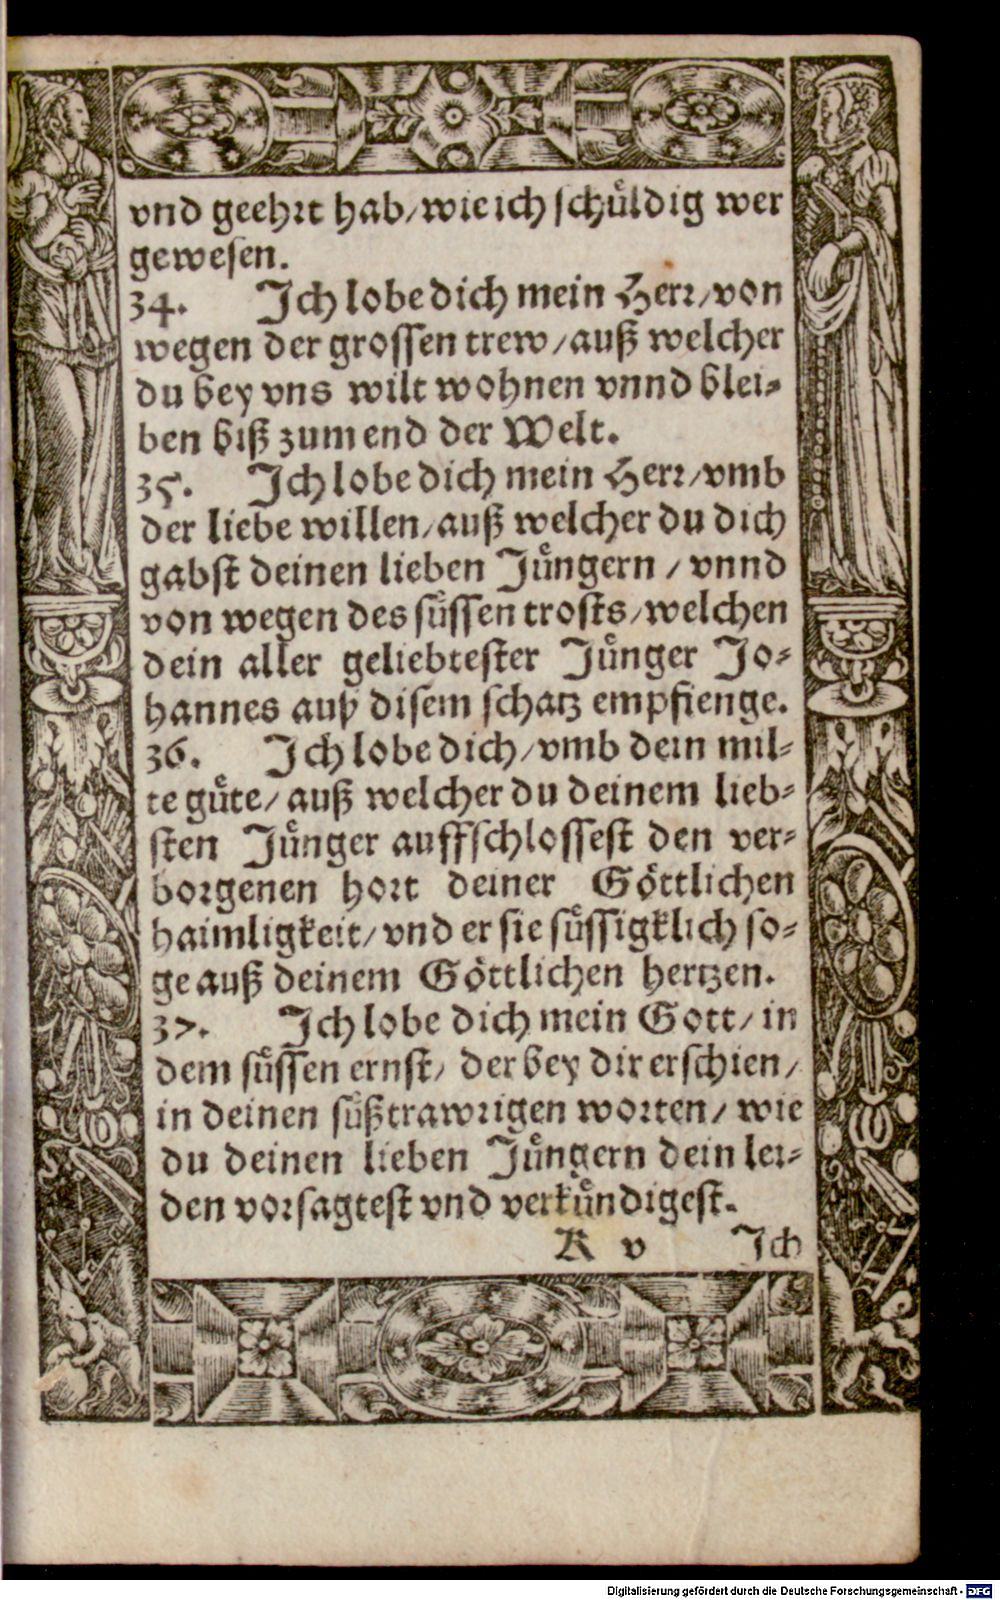 vnd geehrt hab/wie ich schůldig wer
gewesen.
34. Ich lobe dich mein Herr/von
wegen der grossen trew/auß welcher
du bey vns wilt wohnen vnnd blei⸗
ben biß zum end der Welt.
35. Ich lobe dich mein Herr/vmb
der liebe willen/auß welcher du dich
gabst deinen lieben Jůngern / vnnd
von wegen des sůssen trosts/welchen
dein aller geliebtester Jůnger Jo⸗
hannes auß disem schatz empfienge.
36. Ich lobe dich/vmb dein mil⸗
te gůte/auß welcher du deinem lieb⸗
sten Jůnger auffschlossest den ver⸗
borgenen hort deiner Göttlichen
haimligkeit/vnd er sie sůssigklich so⸗
ge auß deinem Göttlichen hertzen.
37. Ich lobe dich mein Gott/in
dem sůssen ernst/der bey dir erschien/
in deinen sůßtrawrigen worten/wie
du deinen lieben Jůngern dein lei⸗
den vorsagtest vnd verkůndigest.
K v Ich
Digitalisierung gefördert durch die Deutsche Forschungsgemeinschaft - DFG